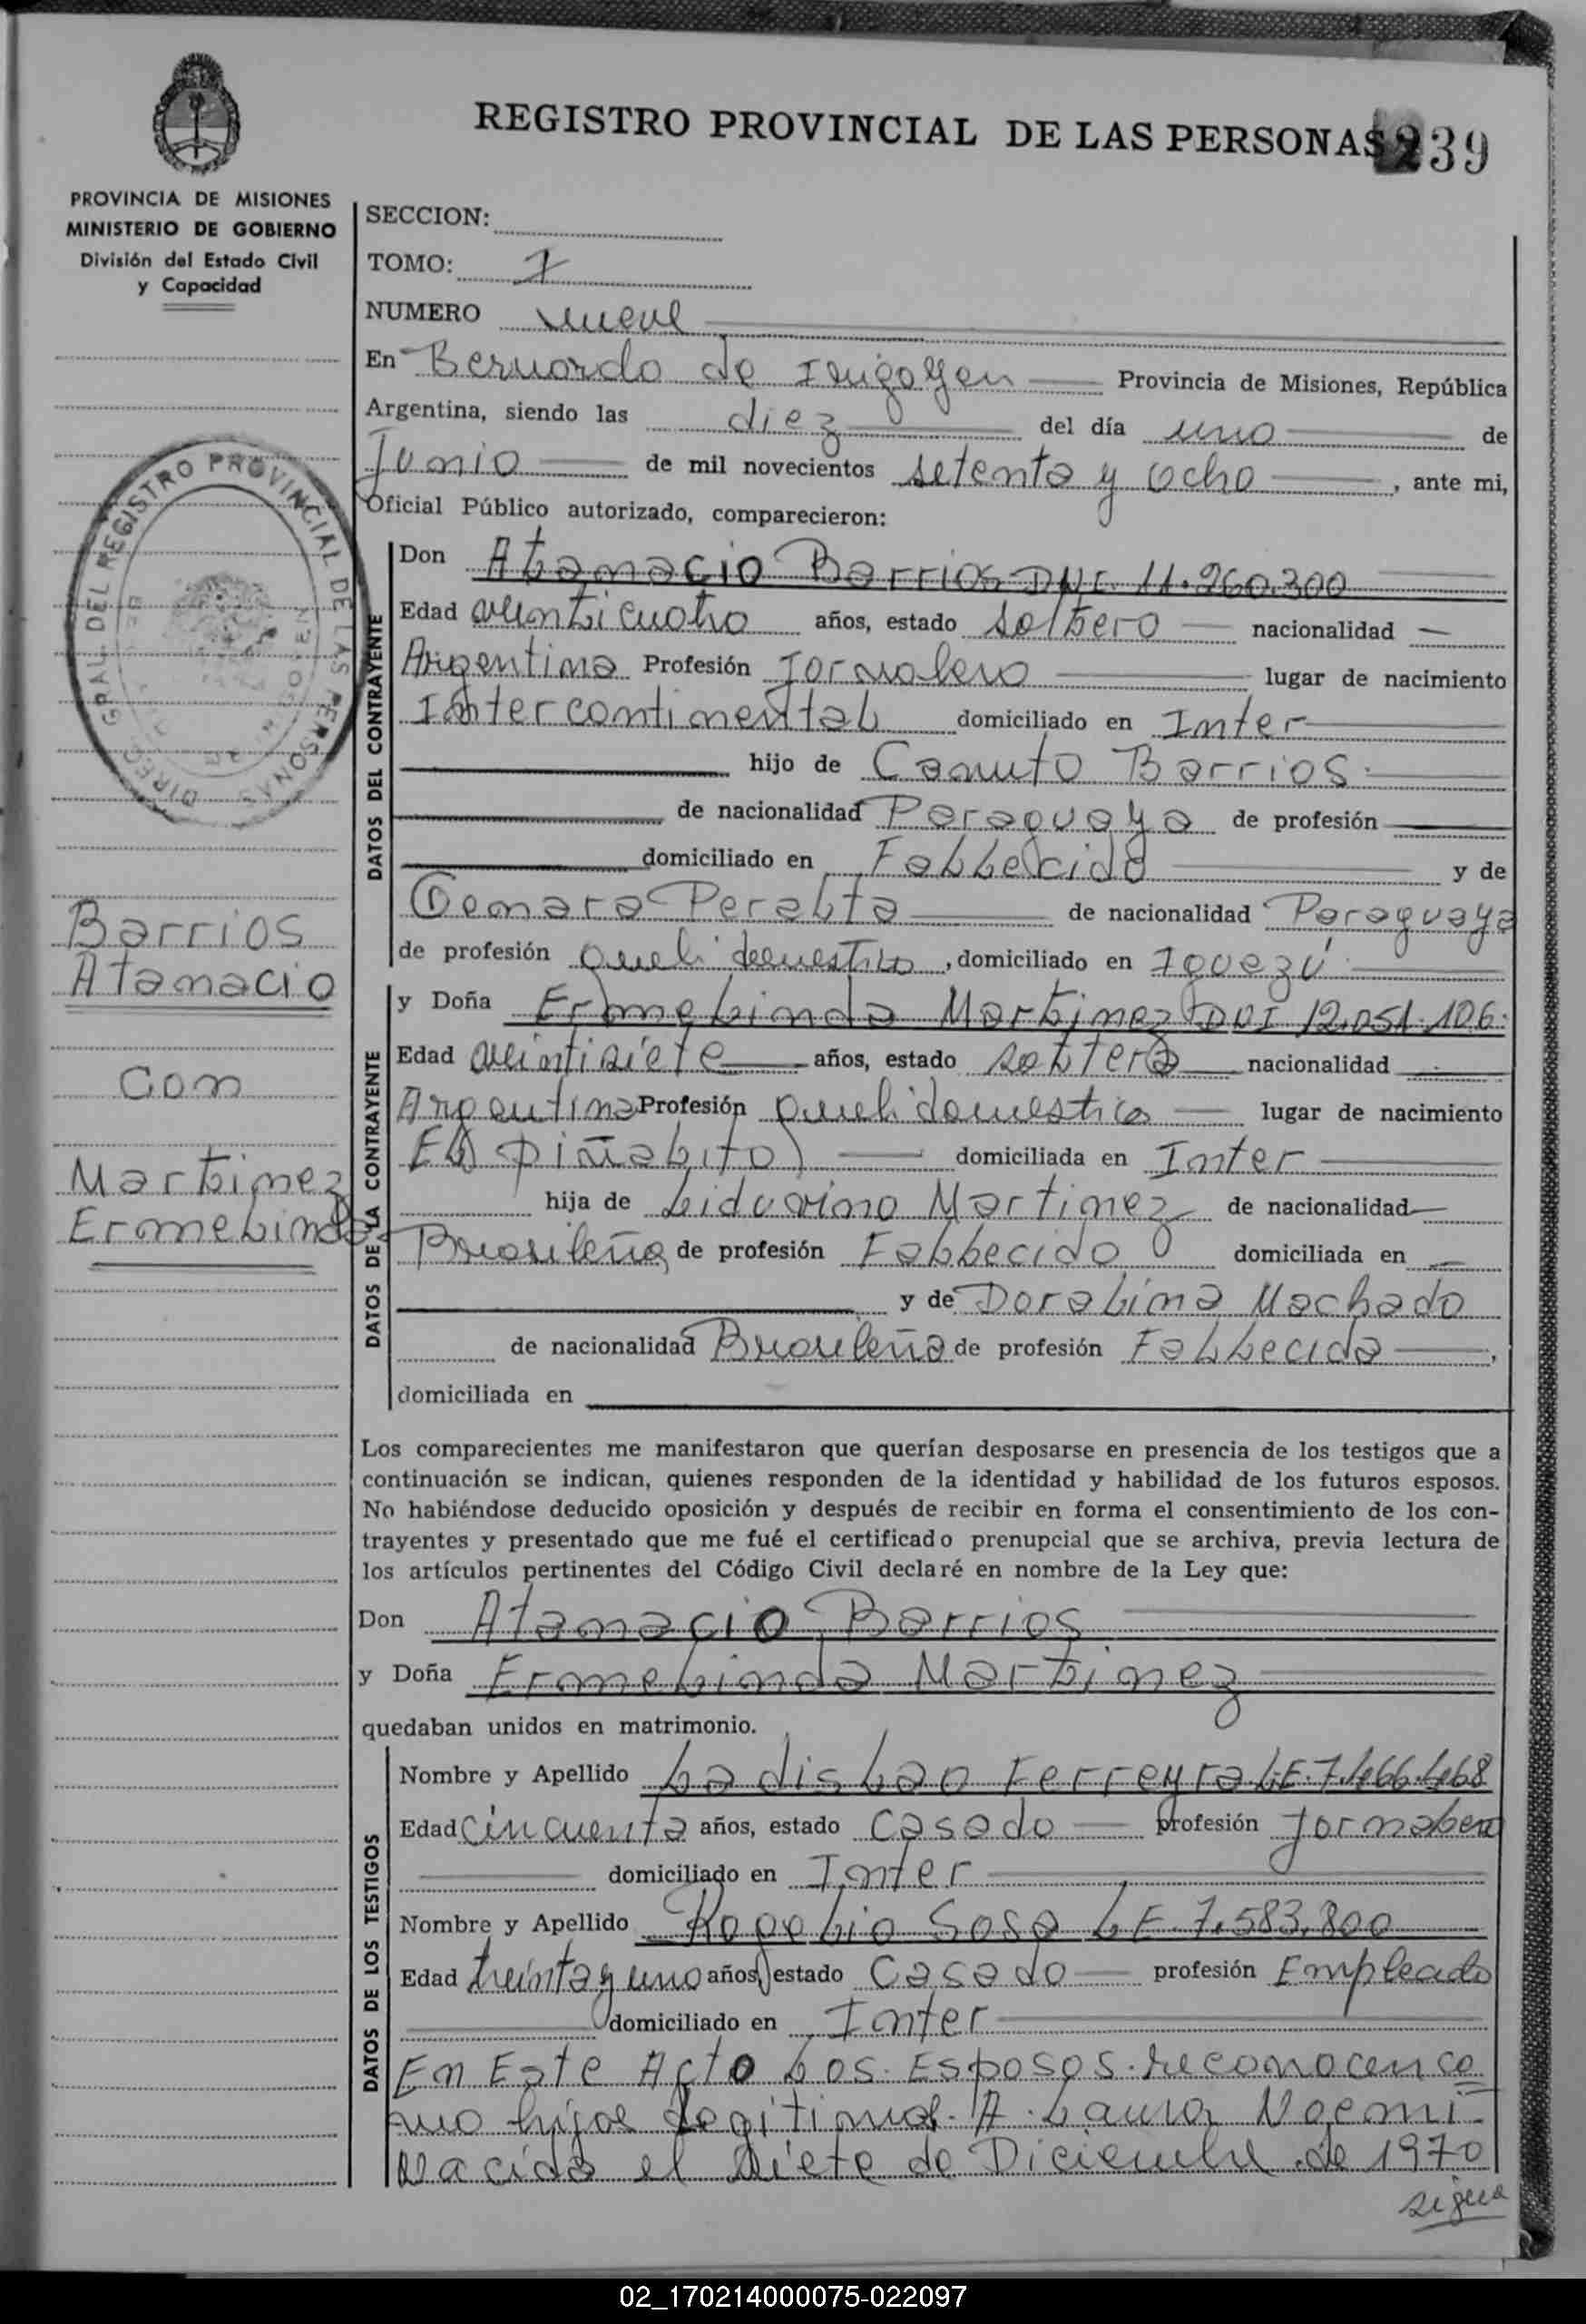 REGISTRO PROVINCIAL DE LAS PERSONAS 239
PROVINCIA DE MISIONES
MINISTERIO DE GOBIERNO
División del Estado Civil
y Capacidad
SECCION:
TOMO: 1
NUMERO nueve
En Bernardo de Irigoyen Provincia de Misiones, República
Argentina, siendo las diez del día uno de
Junio de mil novecientos setenta y ocho, ante mi,
Oficial Público autorizado, comparecieron:
DIRECC GRAL DEL REGISTRO PROVINCIAL DE LAS PERSONAS
DATOS DEL CONTRAYENTE
Don Atanacio Barrios DNI. 11.260.300
Edad veinticuatro años, estado soltero nacionalidad
Argentina Profesión Jornalero lugar de nacimiento
Intercontinental domiciliado en Inter
hijo de Canuto Barrios.
de nacionalidad Paraguaya de profesión
domiciliado en Fallecido y de
Genara Peralta de nacionalidad Paraguaya
de profesión domiciliado en
Barrios
Atanacio
Con
Martinez
Ermelinda
DATOS DE LA CONTRAYENTE
y Doña Ermelinda Martinez DNI 12.051.106.
Edad veintisiete años, estado soltera nacionalidad
Argentina Profesión lugar de nacimiento
El piñalito domiciliada en Inter
hija de Liduvino Martinez de nacionalidad
Brasileña de profesión Fallecido domiciliada en
y de Doralina Machado
de nacionalidad Brasileña de profesión Fallecida,
domiciliada en
Los comparecientes me manifestaron que querían desposarse en presencia de los testigos que a
continuación se indican, quienes responden de la identidad y habilidad de los futuros esposos.
No habiéndose deducido oposición y después de recibir en forma el consentimiento de los con-
trayentes y presentado que me fué el certificado prenupcial que se archiva, previa lectura de
los artículos pertinentes del Código Civil declaré en nombre de la Ley que:
Don Atanacio Barrios
y Doña Ermelinda Martinez
quedaban unidos en matrimonio.
DATOS DE LOS TESTIGOS
Nombre y Apellido Ladislao Ferreyra LE. 7.466.468
Edad Cincuenta años, estado Casado profesión Jornalero
domiciliado en Inter
Nombre y Apellido Rogelio Sosa LE. 7.583.800
Edad treinta y uno años, estado Casado profesión Empleado
domiciliado en Inter
En Este Acto los Esposos reconocen co
mo hijos legitimos. A. Laura Noemi
Nacida el siete de Diciembre de 1970
sigue
02_170214000075-022097